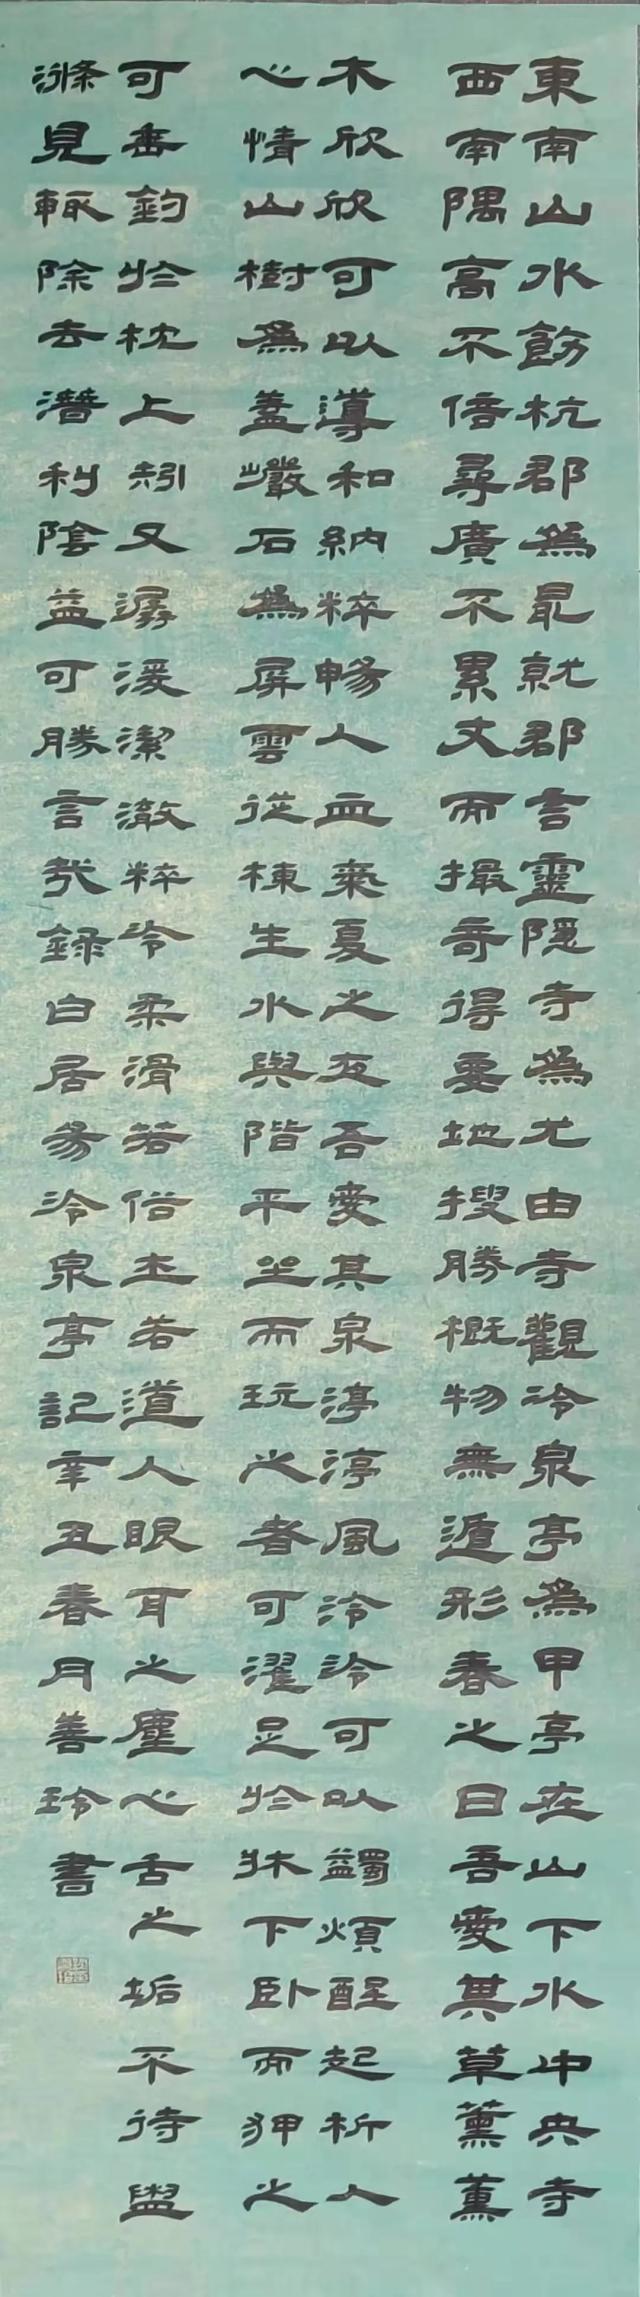 東南山水餘杭郡為最就郡言靈隱寺為尤由寺觀冷泉亭為甲亭在山下水中央寺
西南隅高不倍尋廣不累丈而撮奇得要地搜勝概物無遁形春之日吾愛其草薰薰
木欣欣可以導和納粹暢人血氣夏之夜吾愛其泉渟渟風泠泠可以蠲煩醒起析人
心情山樹為蓋巖石為屏雲從棟生水與階平坐而玩之者可濯足於牀下臥而狎之
可垂釣於枕上矧又潺湲潔澈粹冷柔滑若俗士若道人眼耳之塵心舌之垢不待盥
滌見輒除去潛利陰益可勝言哉錄白居易冷泉亭記辛丑春月善玲書